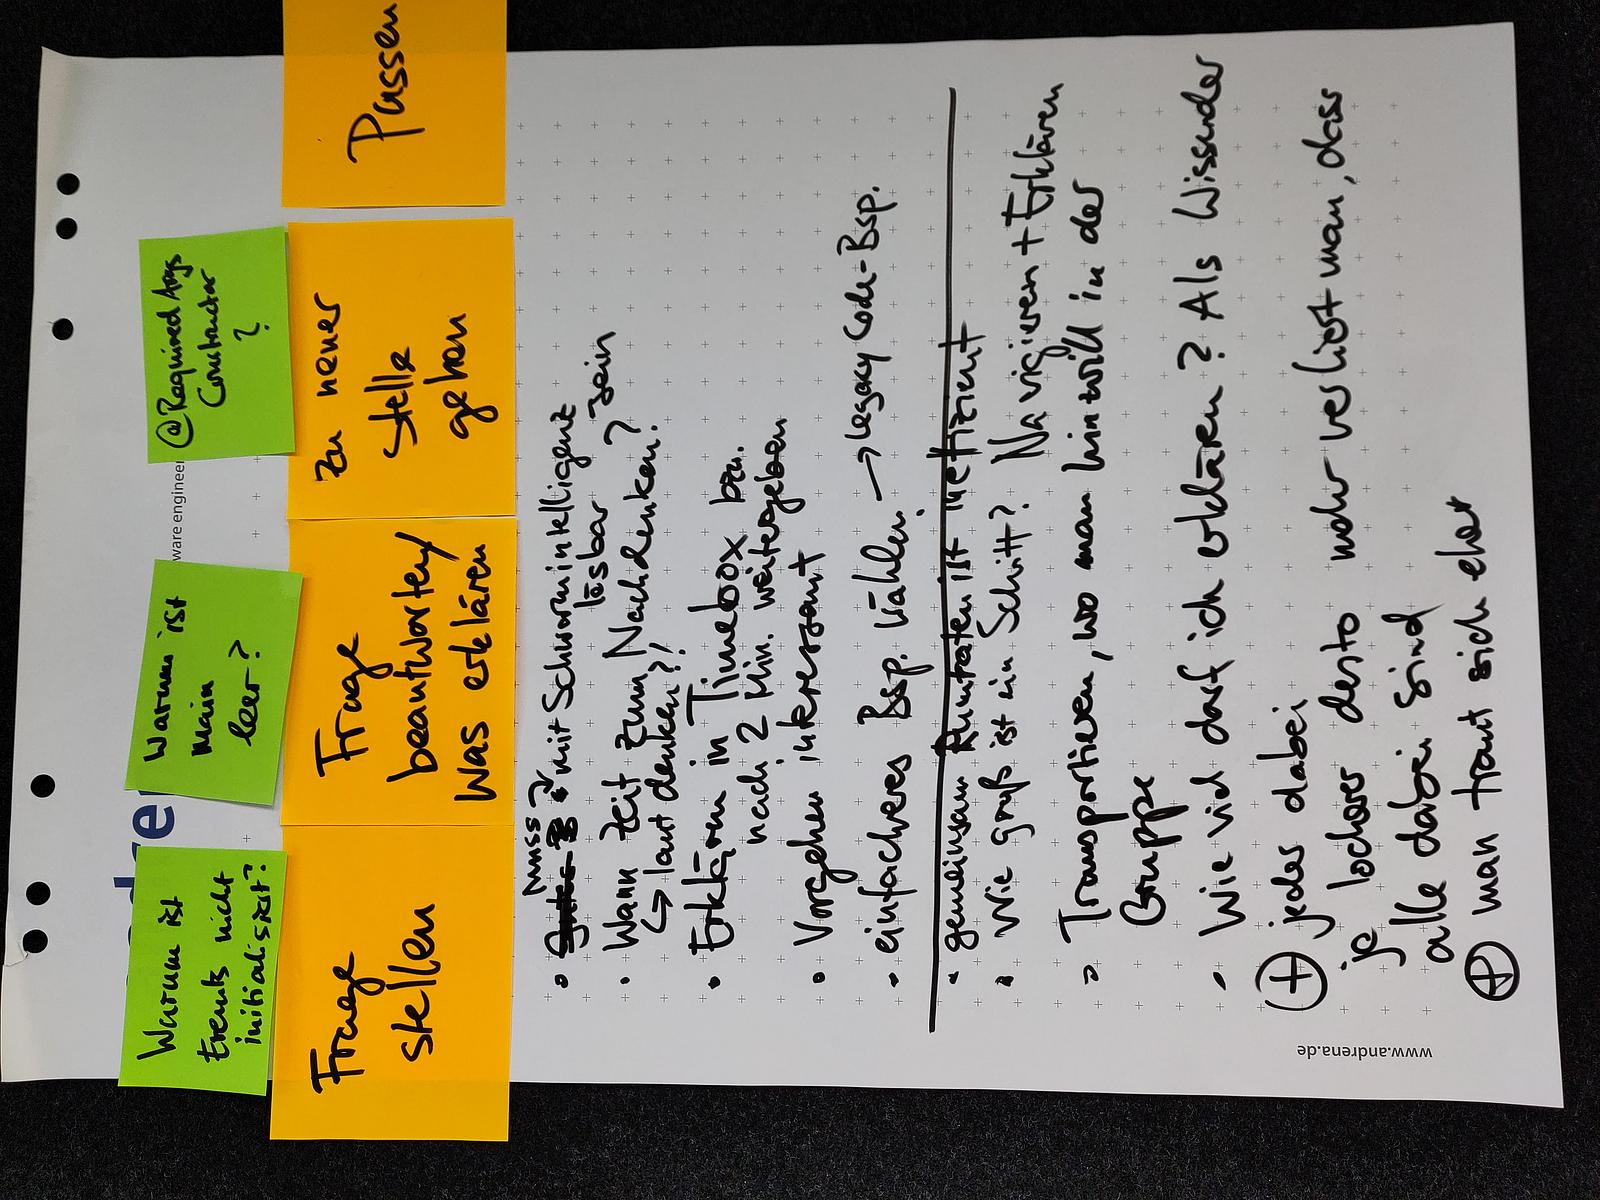 Warum ist
Events nicht
initialisiert?
Warum ist
main
leer?
@Required Args
Constructor
?
ware engineer
Frage
stellen
Frage
beantworten/
Was erklären
Zu neuer
Stelle
gehen
Passen
muss
• mit Schwarmintelligenz
lösbar sein
• Wann Zeit zum Nachdenken?
↳ laut denken?!
• Erklären in Timebox bzw.
nach 2 Min. weitergeben
• Vorgehen interessant
• einfacheres Bsp. wählen. → Legacy Code-Bsp.
• gemeinsam Rumraten ist ineffizient
• Wie groß ist ein Schritt? Navigieren + Erklären
• Transportieren, wo man hinwill in der
Gruppe
• Wie viel darf ich erklären? Als Wissender
⊕ jeder dabei
je lockerer desto mehr verliert man, dass
alle dabei sind
⊕ man traut sich eher
www.andrena.de